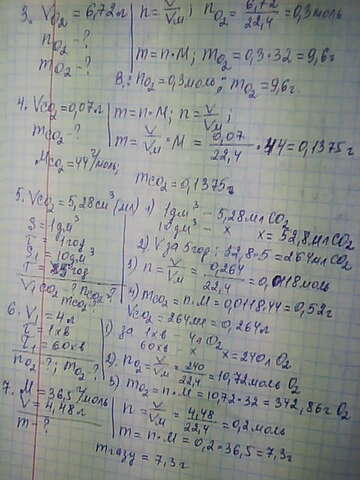 3. V O₂ = 6,72 л | n = V/Vм ; n O₂ = 6,72/22,4 = 0,3 моль
n O₂ - ? | m = n·M; m O₂ = 0,3·32 = 9,6 г
m O₂ - ?
В.: n O₂ = 0,3 моль; m O₂ = 9,6 г.
4. V CO₂ = 0,07 л | m = n·M; n = V/Vм ;
m CO₂ - ? | m = V/Vм · M = 0,07/22,4 · 44 = 0,1375 г
M CO₂ = 44 г/моль;
m CO₂ = 0,1375 г.
5. V CO₂ = 5,28 см³ (мл) 1) 1дм³ – 5,28 мл CO₂
S = 1дм³ 10дм³ – x x = 52,8 мл CO₂
τ = 1год 2) V за 5 год: 52,8·5 = 264 мл CO₂
S₁ = 10дм³
T = год 3) n = V/Vм = 0,264/22,4 = 0,0118 моль
V₁ CO₂ - ? n CO₂ - ? m CO₂ - ? 4) m CO₂ = n·M = 0,0118·44 = 0,52 г
V CO₂ = 264 мл = 0,264 л
6. V₁ = 4 л 1) за 1хв – 4 л O₂
τ = 1хв 60хв – x x = 240 л O₂
τ₁ = 60хв
n O₂ - ?; m O₂ - ? 2) n O₂ = V/Vм = 240/22,4 = 10,72 моль O₂
3) m O₂ = n·M = 10,72·32 = 342,86 г O₂
7. M = 36,5 г/моль
V = 4,48 л | n = V/Vм = 4,48/22,4 = 0,2 моль
m - ? | m = n·M = 0,2·36,5 = 7,3 г
m газу = 7,3 г